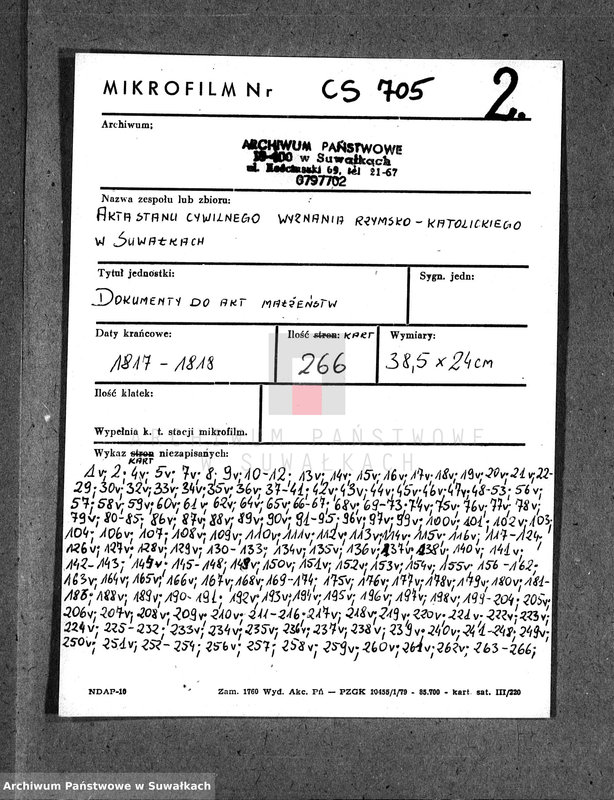 MIKROFILM Nr CS 705 2.
Archiwum:
ARCHIWUM PAŃSTWOWE
16-400 w Suwałkach
ul. Kościuszki 69, tel 21-67
0797702
Nazwa zespołu lub zbioru:
AKTA STANU CYWILNEGO WYZNANIA RZYMSKO-KATOLICKIEGO
W SUWAŁKACH
Tytuł jednostki: Sygn. jedn:
DOKUMENTY DO AKT MAŁŻEŃSTW
Daty krańcowe: Ilość stron: KART Wymiary:
1817 - 1818 266 38,5 x 24 cm
Ilość klatek:
Wypełnia k. t. stacji mikrofilm.
ARCHIWUM PAŃSTWOWE
W SUWAŁKACH
Wykaz stron niezapisanych:
KART
1v; 2; 4v; 5v; 7v; 8; 9v; 10-12; 13v; 14v; 15v; 16v; 17v; 18v; 19v; 20v; 21v; 22-
29; 30v; 32v; 33v; 34v; 35v; 36v; 37-41; 42v; 43v; 44v; 45v; 46v; 47v; 48-53; 56v;
57; 58v; 59v; 60v; 61v; 62v; 64v; 65v; 66-67; 68v; 69-73; 74v; 75v; 76v; 77v; 78v;
79v; 80-85; 86v; 87v; 88v; 89v; 90v; 91-95; 96v; 97v; 99v; 100v; 101; 102v; 103;
104; 106v; 107; 108v; 109v; 110v; 111v; 112v; 113v; 114v; 115v; 116v; 117-124;
126v; 127v; 128v; 129v; 130-133; 134v; 135v; 136v; 137v; 138v; 140v; 141v;
142-143; 145v; 145-148; 148v; 150v; 151v; 152v; 153v; 154v; 155v; 156-162;
163v; 164v; 165v; 166v; 167v; 168v; 169-174; 175v; 176v; 177v; 178v; 179v; 180v; 181-
188v; 189v; 190-191; 192v; 193v; 194v; 195v; 196v; 197v; 198v; 199-204; 205v;
206v; 207v; 208v; 209v; 210v; 211-216; 217v; 218v; 219v; 220v; 221v; 222v; 223v;
224v; 225-232; 233v; 234v; 235v; 236v; 237v; 238v; 239v; 240v; 241-248; 249v;
250v; 251v; 252-254; 256v; 257; 258v; 259v; 260v; 261v; 262v; 263-266;
NDAP-10 Zam. 1760 Wyd. Akc. Pń — PZGK 10455/1/79 - 85.700 - kart. sat. III/220
Archiwum Państwowe w Suwałkach